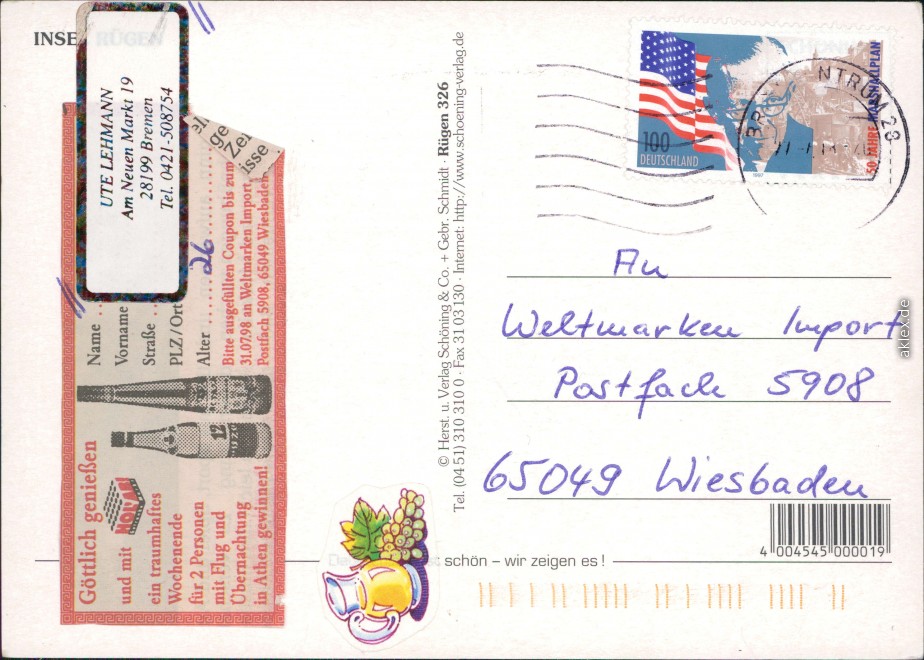 INSEL RÜGEN
UTE LEHMANN
Am Neuen Markt 19
28199 Bremen
Tel. 0421-508754
Name
Vorname
Straße
PLZ/Ort
Alter 26
Bitte ausgefüllten Coupon bis zum
31.07.98 an Weltmarken Import,
Postfach 5908, 65049 Wiesbaden
Göttlich genießen
und mit
ein traumhaftes
Wochenende
für 2 Personen
mit Flug und
Übernachtung
in Athen gewinnen!
12
© Herst. u. Verlag Schöning & Co. + Gebr. Schmidt · Rügen 326
Tel. (04 51) 310 310 0 · Fax 31 03 130 · Internet: http://www.schoening-verlag.de
100
DEUTSCHLAND
50 JAHRE MARSHALLPLAN
1997
An
Weltmarken Import
Postfach 5908
65049 Wiesbaden
4 004545 000019
schön – wir zeigen es !
akpool.de